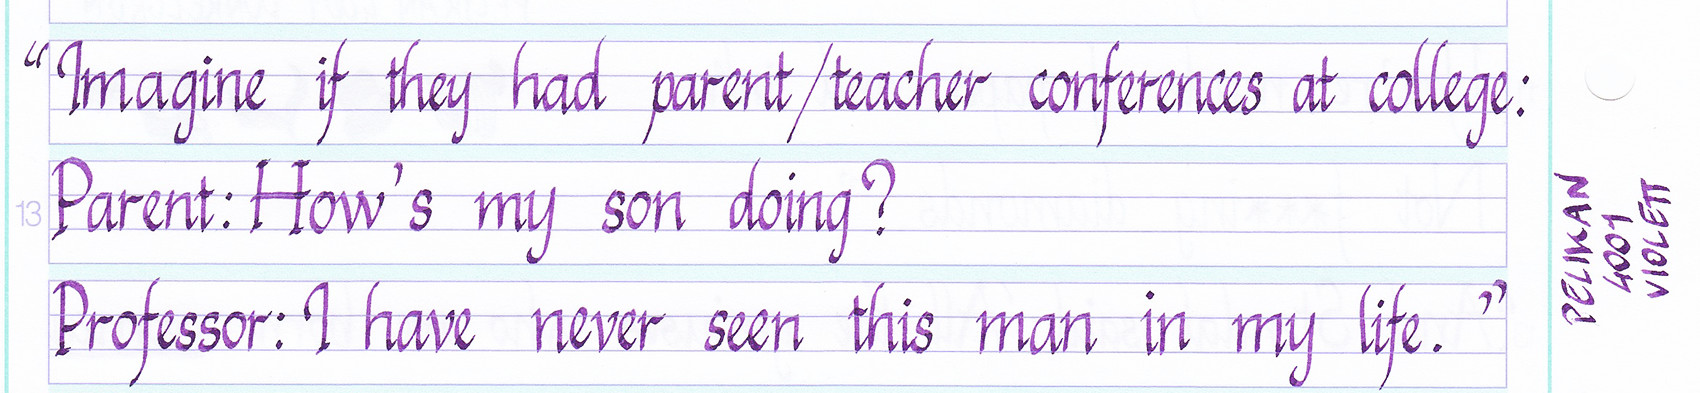 “Imagine if they had parent/teacher conferences at college:
13
Parent: How's my son doing?
Professor: I have never seen this man in my life.”
PELIKAN
4001
VIOLETT